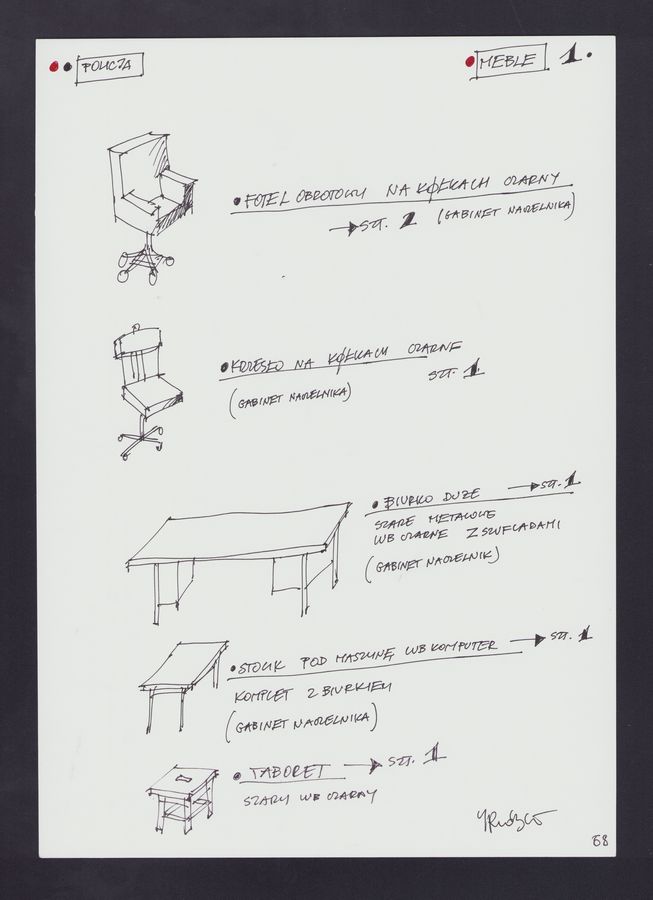 POLICJA
MEBLE 1.
FOTEL OBROTOWY NA KÓŁKACH CZARNY
SZT. 1 (GABINET NACZELNIKA)
KRZESŁO NA KÓŁKACH CZARNE
SZT. 1
(GABINET NACZELNIKA)
BIURKO DUŻE SZT. 1
SZARE METALOWE
LUB CZARNE Z SZUFLADAMI
(GABINET NACZELNIK)
STOLIK POD MASZYNĘ LUB KOMPUTER SZT. 1
KOMPLET Z BIURKIEM
(GABINET NACZELNIKA)
TABORET SZT. 1
SZARY LUB CZARNY
68